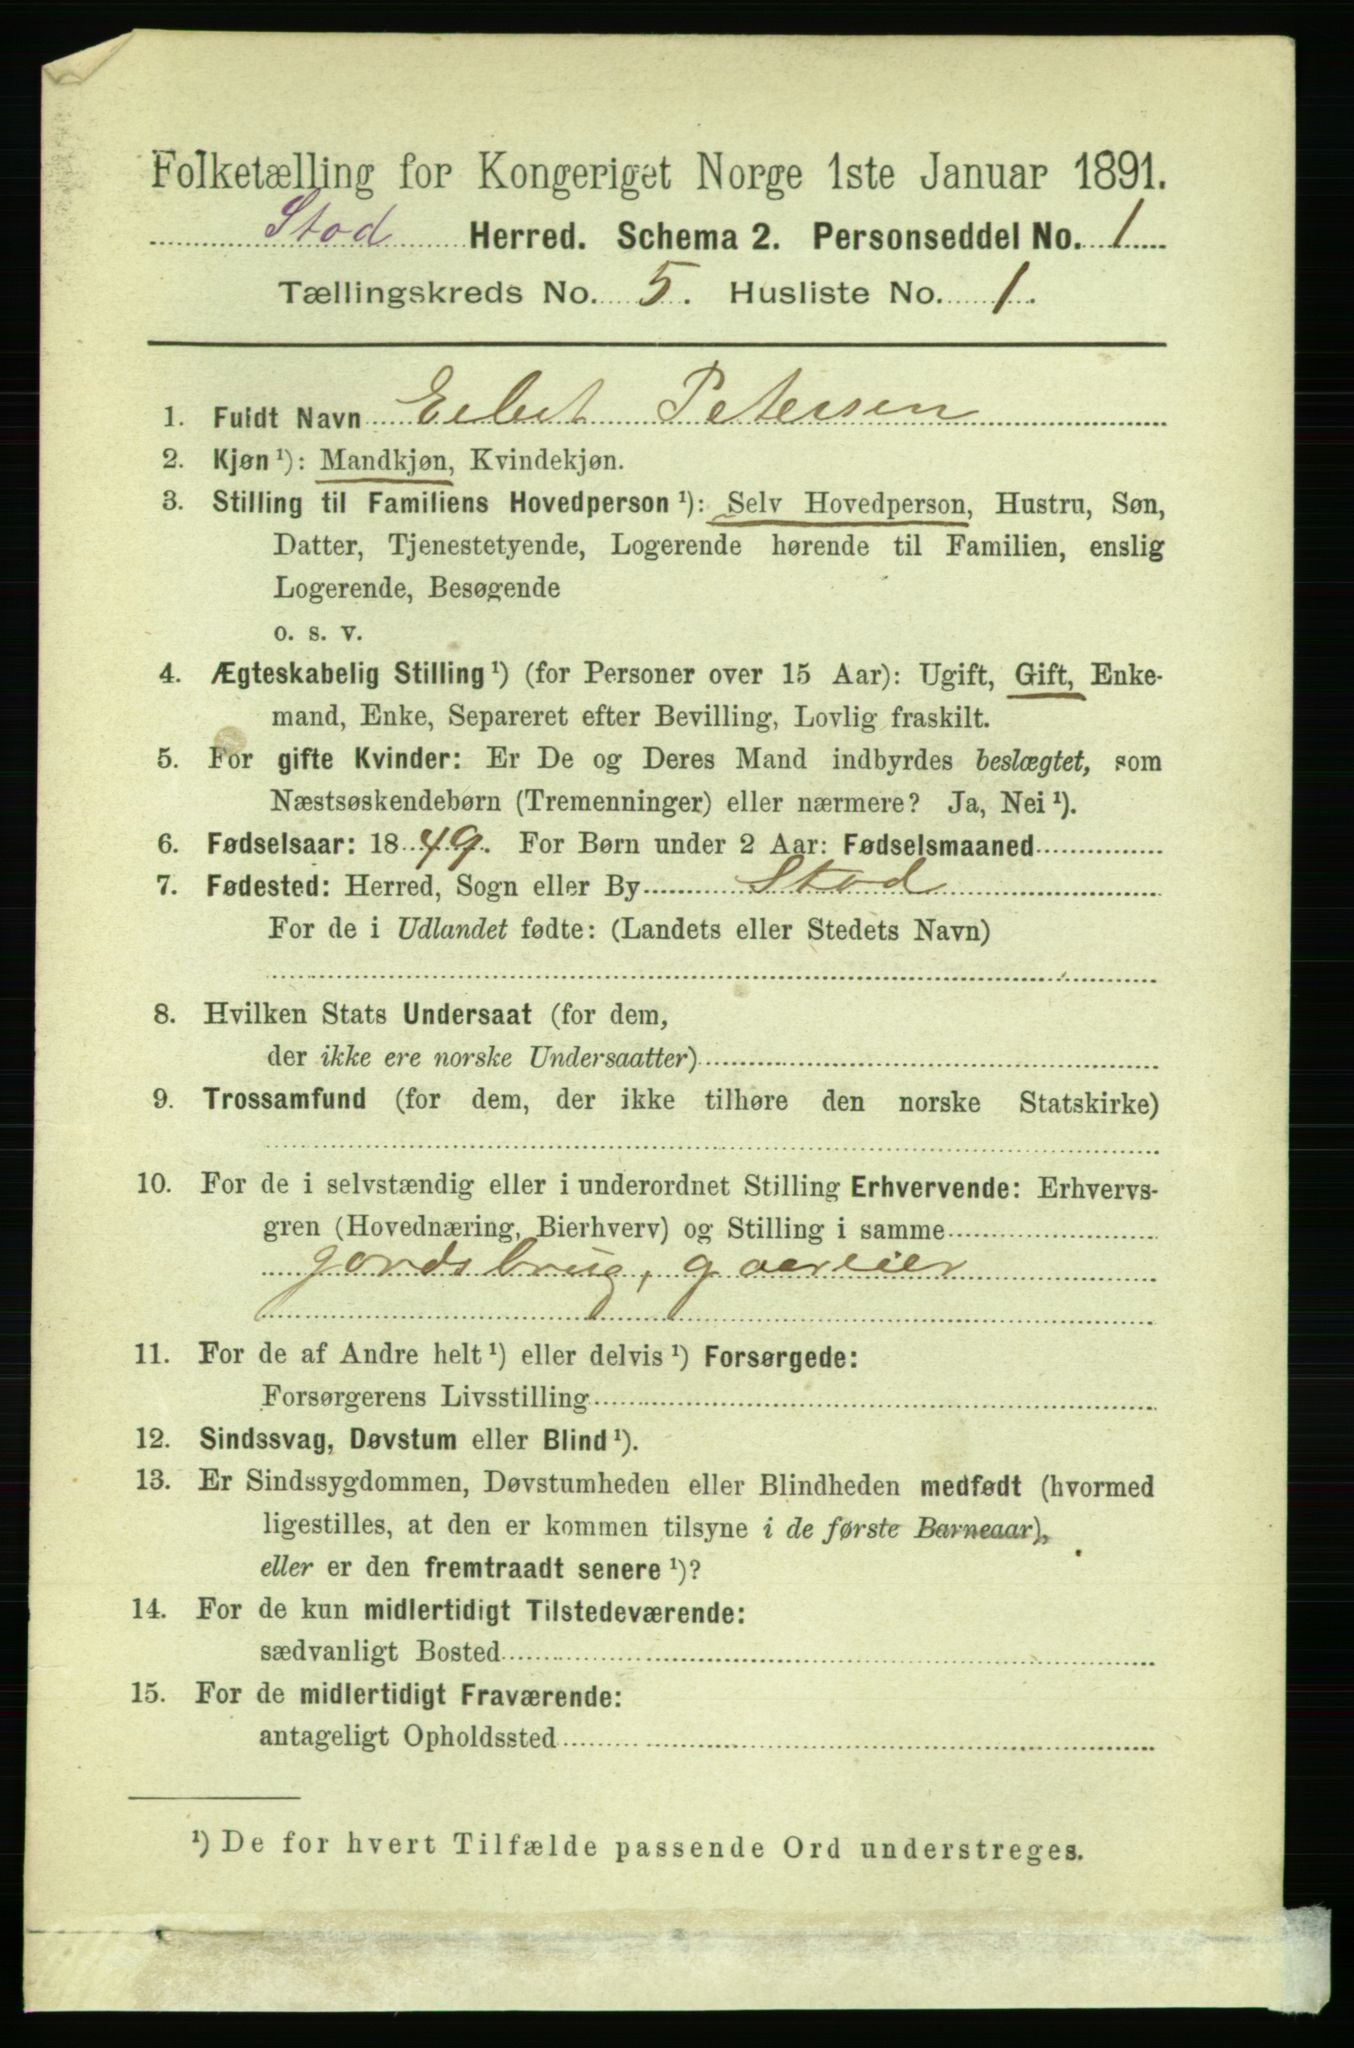 Folketælling for Kongeriget Norge 1ste Januar 1891.
Stod Herred. Schema 2. Personseddel No. 1
Tællingskreds No. 5. Husliste No. 1.
1. Fuldt Navn Petersen
2. Kjøn ¹): Mandkjøn, Kvindekjøn.
3. Stilling til Familiens Hovedperson ¹): Selv Hovedperson, Hustru, Søn,
Datter, Tjenestetyende, Logerende hørende til Familien, enslig
Logerende, Besøgende
o. s. v.
4. Ægteskabelig Stilling ¹) (for Personer over 15 Aar): Ugift, Gift, Enke-
mand, Enke, Separeret efter Bevilling, Lovlig fraskilt.
5. For gifte Kvinder: Er De og Deres Mand indbyrdes beslægtet, som
Næstsøskendebørn (Tremenninger) eller nærmere? Ja, Nei ¹).
6. Fødselsaar: 1849. For Børn under 2 Aar: Fødselsmaaned
7. Fødested: Herred, Sogn eller By Stod
For de i Udlandet fødte: (Landets eller Stedets Navn)
8. Hvilken Stats Undersaat (for dem,
der ikke ere norske Undersaatter)
9. Trossamfund (for dem, der ikke tilhøre den norske Statskirke)
10. For de i selvstændig eller i underordnet Stilling Erhvervende: Erhvervs-
gren (Hovednæring, Bierhverv) og Stilling i samme
jordsbrug, gaareier
11. For de af Andre helt ¹) eller delvis ¹) Forsørgede:
Forsørgerens Livsstilling
12. Sindssvag, Døvstum eller Blind ¹).
13. Er Sindssygdommen, Døvstumheden eller Blindheden medfødt (hvormed
ligestilles, at den er kommen tilsyne i de første Barneaar),
eller er den fremtraadt senere ¹)?
14. For de kun midlertidigt Tilstedeværende:
sædvanligt Bosted
15. For de midlertidigt Fraværende:
antageligt Opholdssted
¹) De for hvert Tilfælde passende Ord understreges.